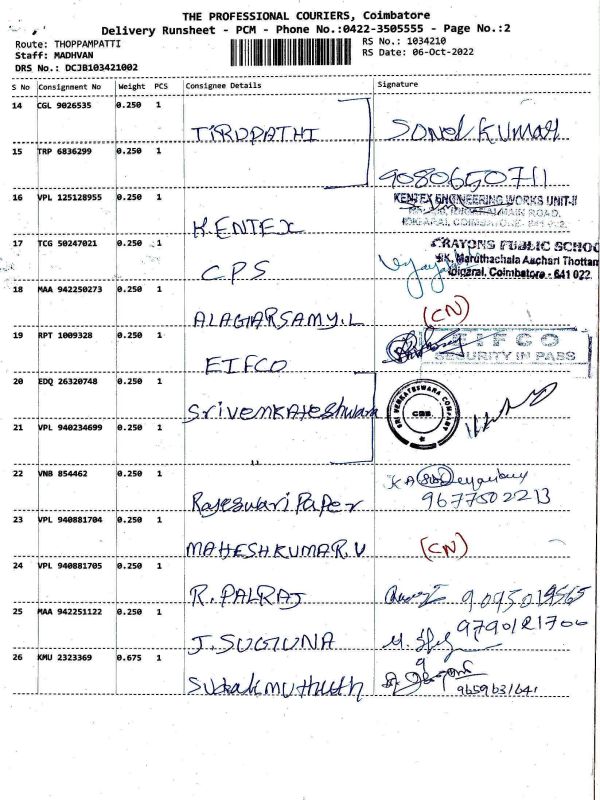 THE PROFESSIONAL COURIERS, Coimbatore
Delivery Runsheet - PCM - Phone No.:0422-3505555 - Page No.:2
Route: THOPPAMPATTI RS No.: 1034210
Staff: MADHVAN RS Date: 06-Oct-2022
DRS No.: DCJB103421002
S No Consignment No Weight PCS Consignee Details Signature
14 CGL 9026535 0.250 1 TIRUPATHI Sonol Kumar
15 TRP 6836299 0.250 1 9080650711
16 VPL 125128955 0.250 1 KENTEX KENTEX ENGINEERING WORKS UNIT-II
MAIN ROAD,
17 TCG 50247021 0.250 1 CPS CRAYONS PUBLIC SCHOO
S.K. Maruthachala Aachari Thottam
Idigarai, Coimbatore - 641 022
18 MAA 942250273 0.250 1 ALAGIARSAMY.L (CN)
19 RPT 1009328 0.250 1 EIFCO EIFCO
SECURITY IN PASS
20 EDQ 26320748 0.250 1 Srivenkateshwara SRI VENKATESWARA COMPANY CBE
21 VPL 940234699 0.250 1 "
22 VNB 854462 0.250 1 Rajeswari Paper 9677502213
23 VPL 940881704 0.250 1 MAHESHKUMAR.V (CN)
24 VPL 940881705 0.250 1 R.PALRAJ 9095019565
25 MAA 942251122 0.250 1 J.SUGUNA 9790121706
26 KMU 2323369 0.675 1 9659631641